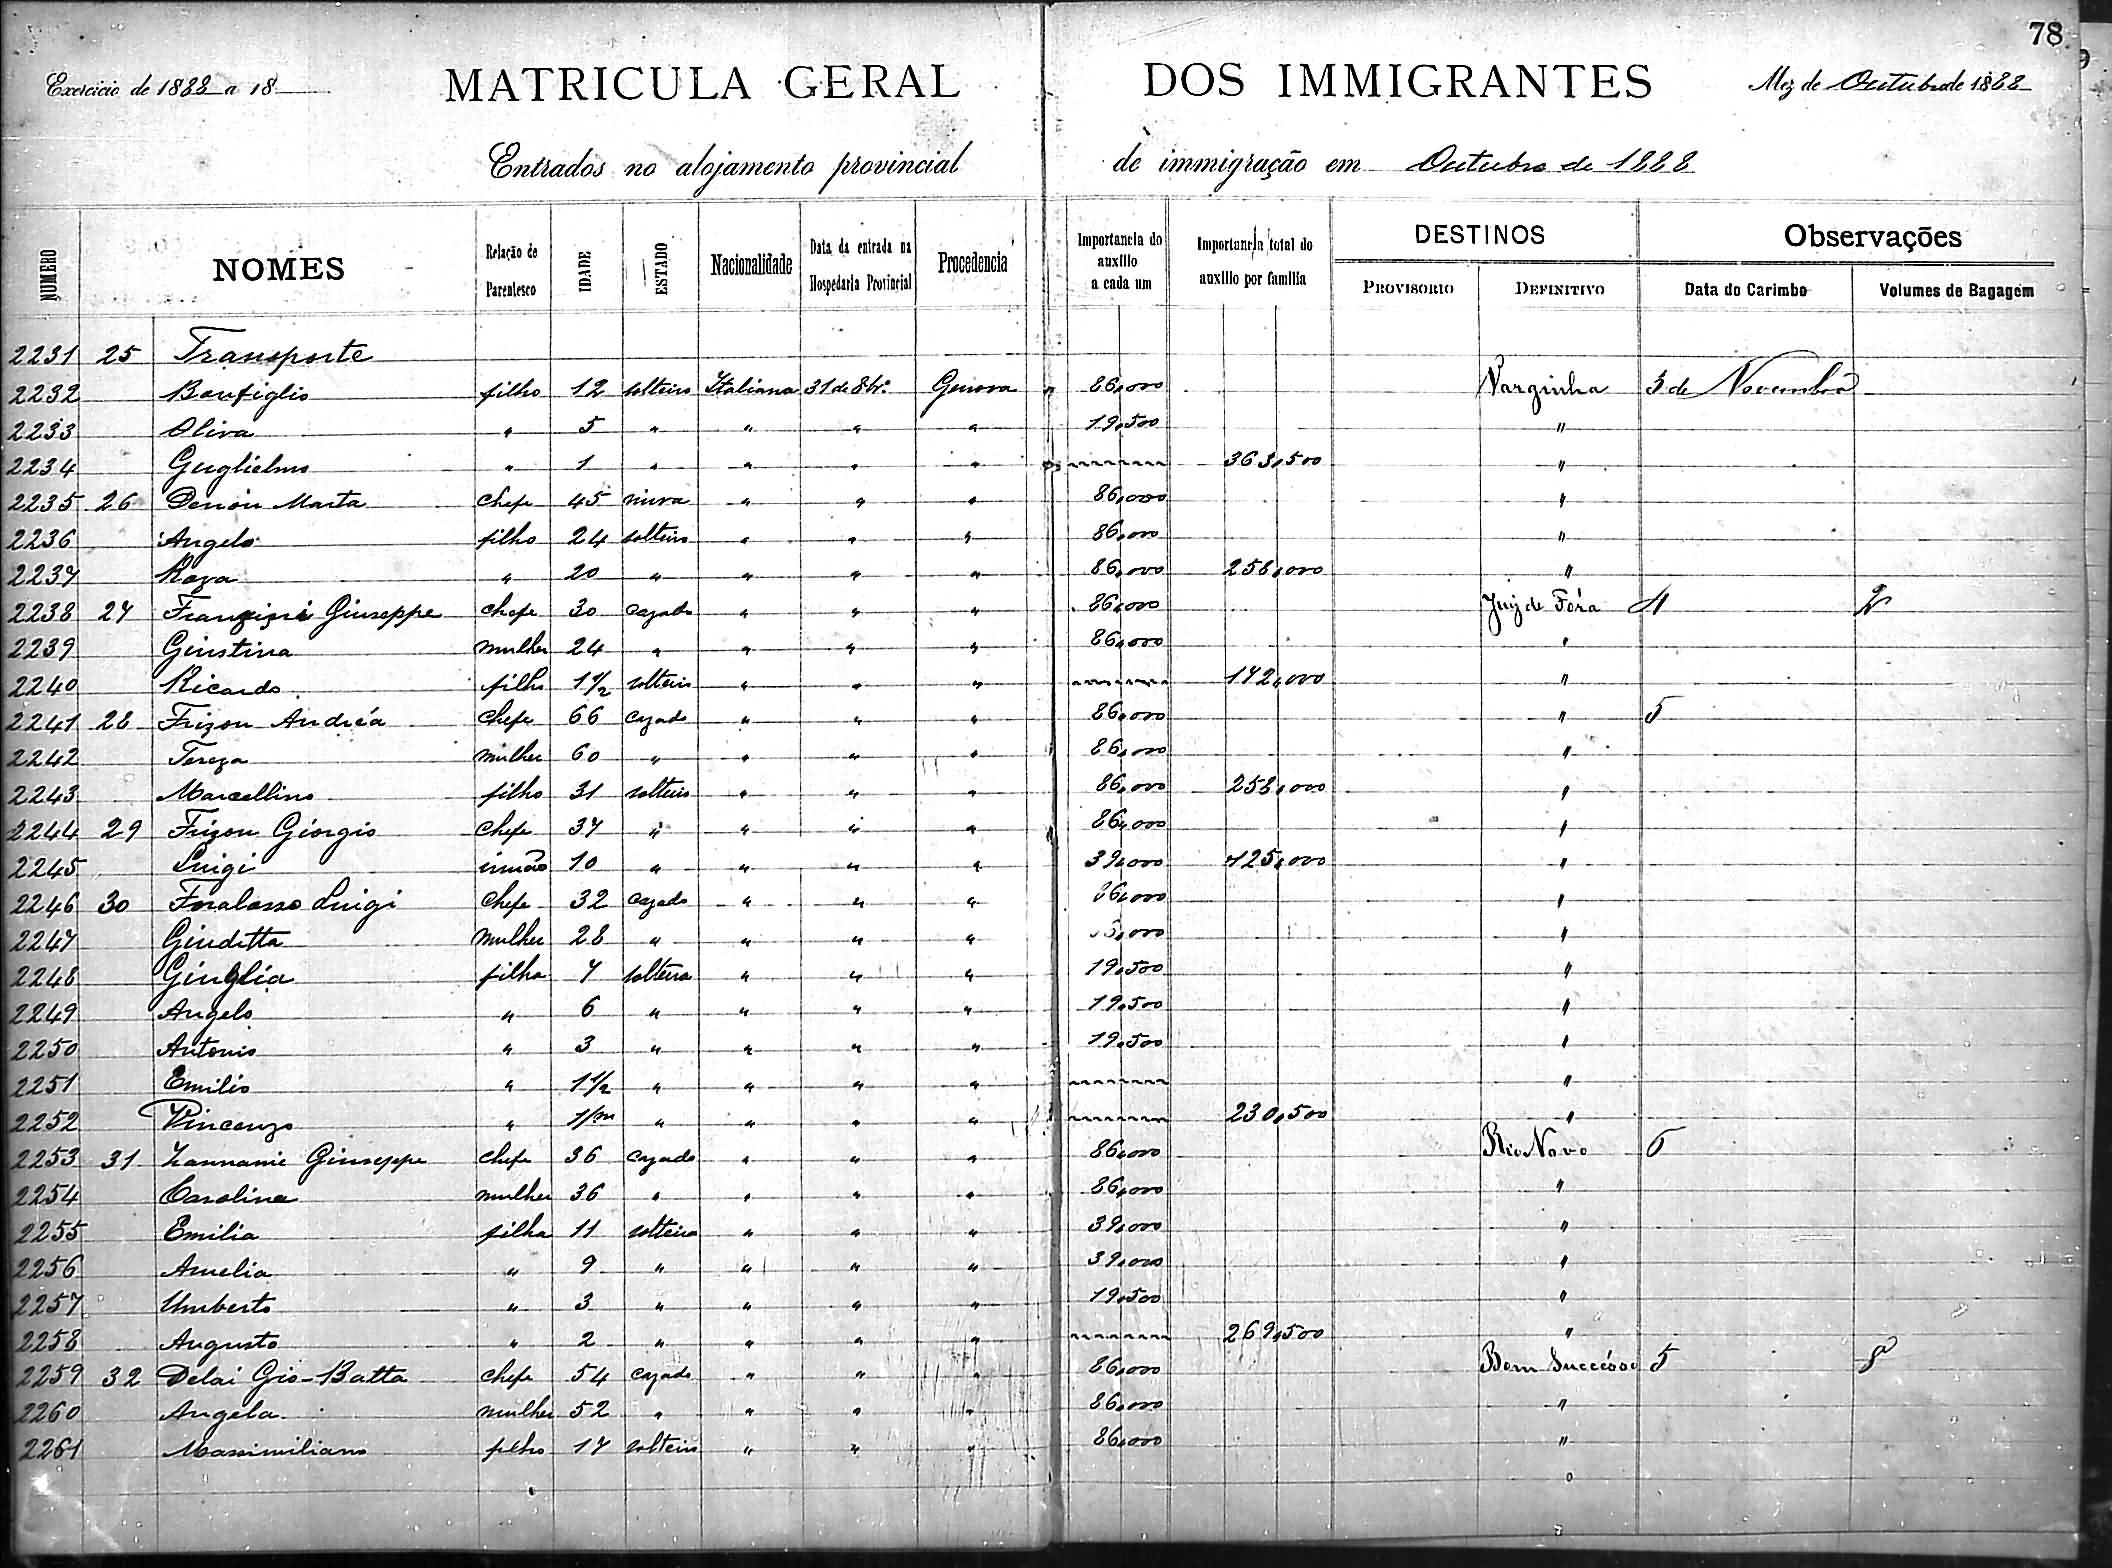 78
Exercicio de 1888 a 18
MATRICULA GERAL DOS IMMIGRANTES
Mez de Outubro de 1888
Entrados no alojamento provincial de immigração em Outubro de 1888
NUMERO NOMES Relação de Parentesco IDADE ESTADO Nacionalidade Data da entrada na Hospedaria Provincial Procedencia Importancia do auxilio a cada um Importancia total do auxilio por familia DESTINOS PROVISORIO DEFINITIVO Observações Data do Carimbo Volumes de Bagagem
2231 25 Transporte
2232 Bonfiglio filho 12 solteiro Italiana 31 de 8bro Genova 86,000 Varginha 3 de Novembro
2233 Oliva " 5 " " " " 19,500 "
2234 Guglielmo " 1 " " " " 363,500 "
2235 26 Marta chefe 45 viuva " " " 86,000 "
2236 Angelo filho 24 solteiro " " " 86,000 "
2237 Roza " 20 " " " " 86,000 258,000 "
2238 27 Giuseppe chefe 30 cazado " " " 86,000 Juiz de Fóra 4 2
2239 Giustina mulher 24 " " " " 86,000 "
2240 Ricardo filho 1 1/2 solteiro " " " 172,000 "
2241 28 Frizon Andréa chefe 66 cazado " " " 86,000 " 5
2242 Tereza mulher 60 " " " " 86,000 "
2243 Marcellino filho 31 solteiro " " " 86,000 258,000 "
2244 29 Frizon Giorgio chefe 37 " " " " 86,000 "
2245 Luigi irmão 10 " " " " 39,000 125,000 "
2246 30 Luigi chefe 32 cazado " " " 86,000 "
2247 Giuditta mulher 28 " " " " 86,000 "
2248 Giuglia filha 7 solteira " " " 19,500 "
2249 Angelo " 6 " " " " 19,500 "
2250 Antonio " 3 " " " " 19,500 "
2251 Emilio " 1 1/2 " " " " "
2252 Vincenzo " 1/m " " " " 230,500 "
2253 31 Giuseppe chefe 36 cazado " " " 86,000 Rio Novo 5
2254 Carolina mulher 36 " " " " 86,000 "
2255 Emilia filha 11 solteira " " " 39,000 "
2256 Amelia " 9 " " " " 39,000 "
2257 Umberto " 3 " " " " 19,500 "
2258 Augusto " 2 " " " " 269,500 "
2259 32 Delai Gio-Batta chefe 54 cazado " " " 86,000 Bom Successo 5 8
2260 Angela mulher 52 " " " " 86,000 "
2261 Massimiliano filho 17 solteiro " " " 86,000 "